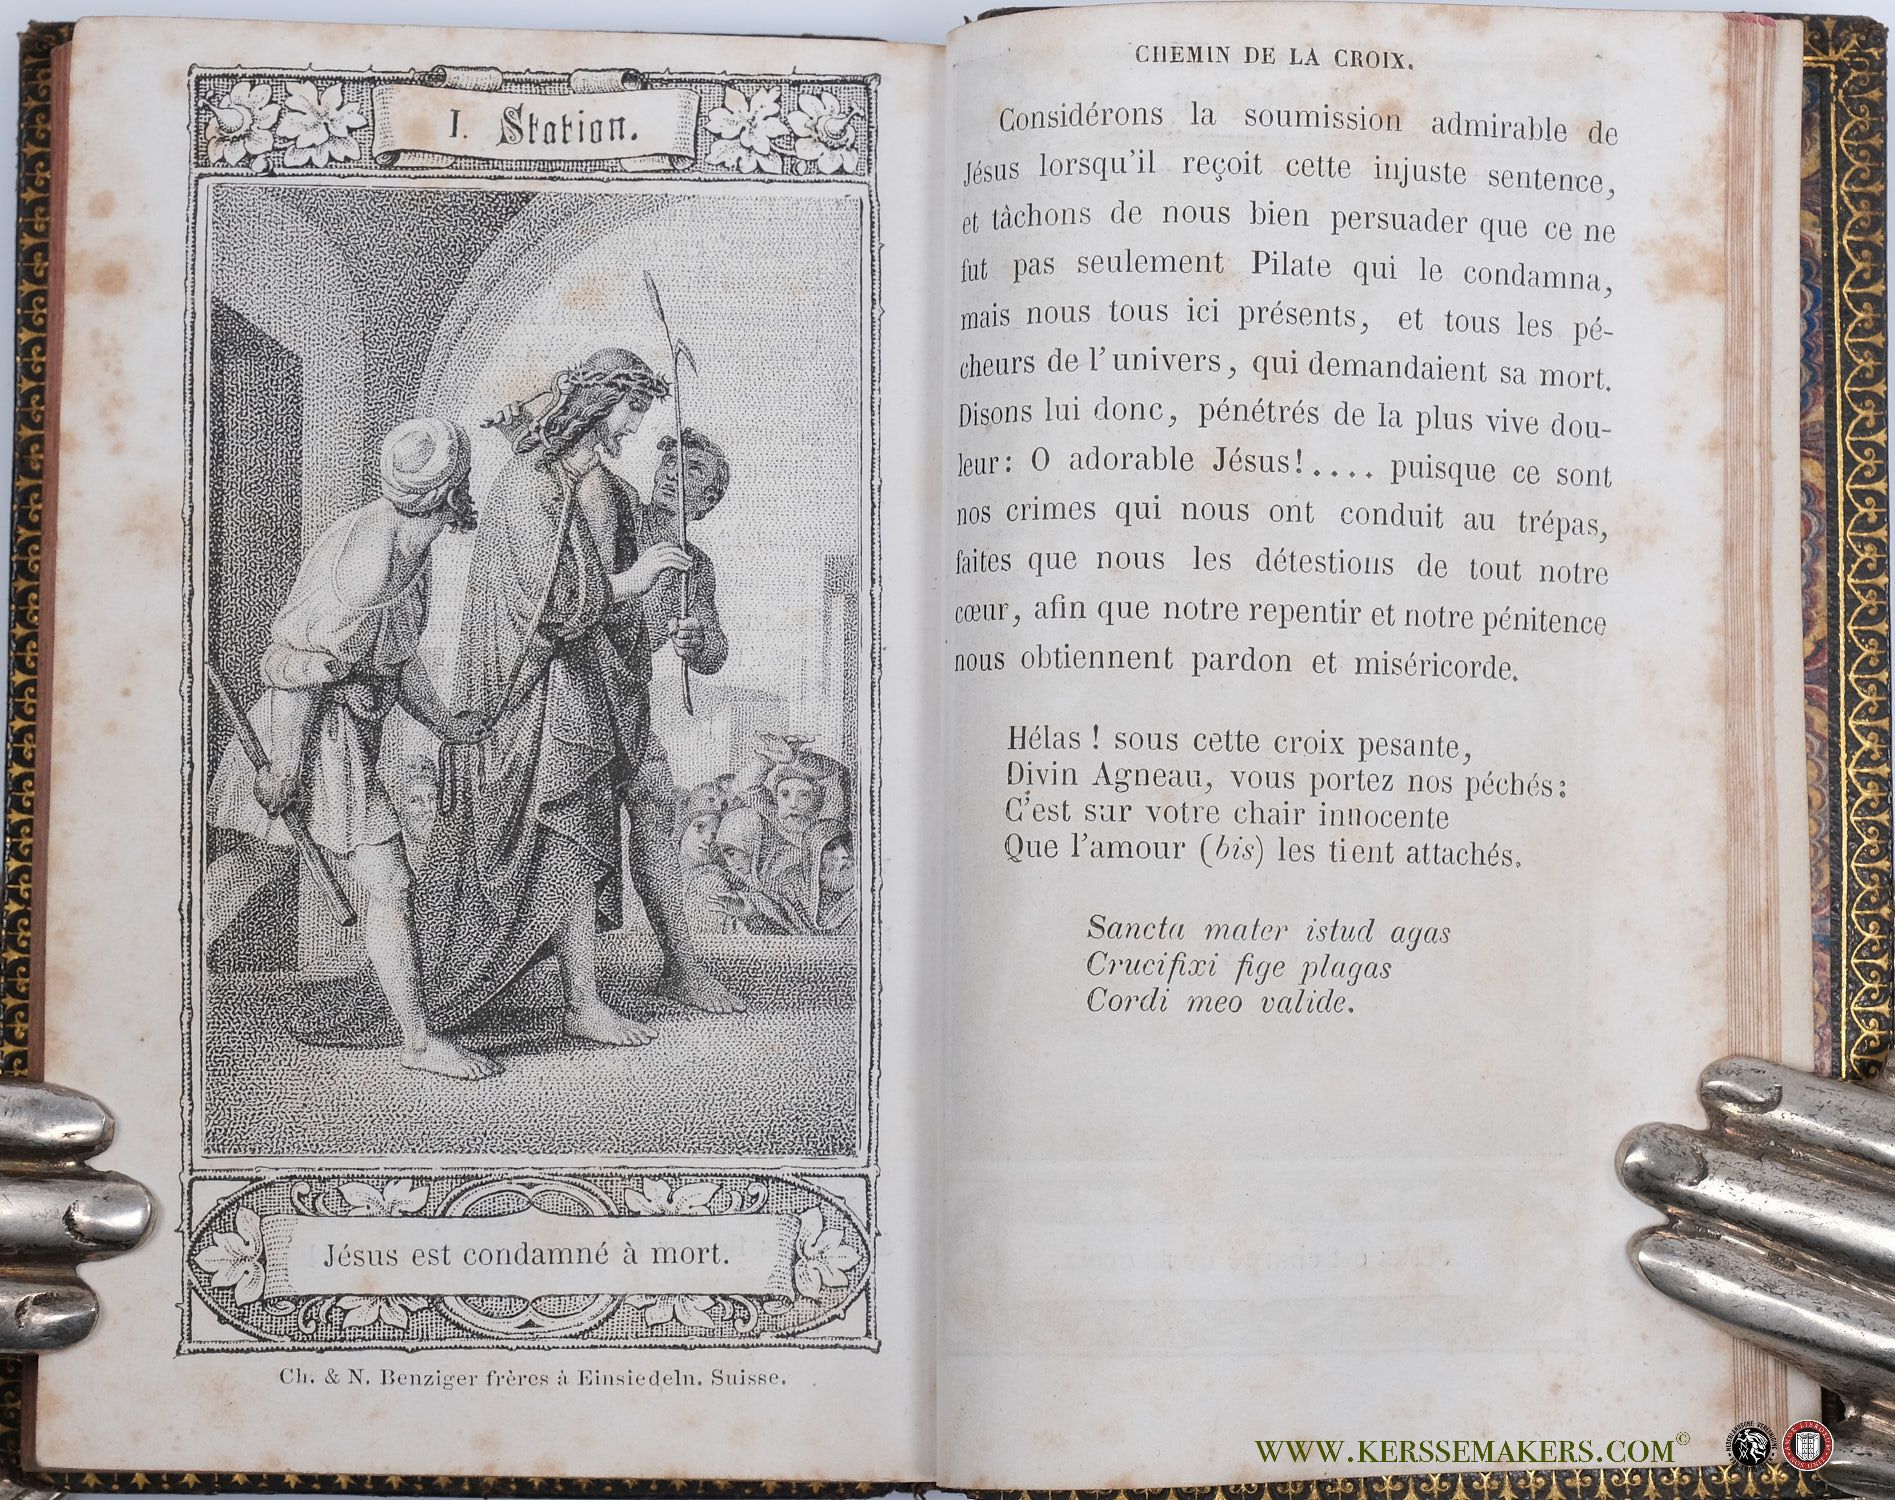 I. Station.
Jésus est condamné à mort.
Ch. & N. Benziger frères à Einsiedeln. Suisse.
CHEMIN DE LA CROIX.
Considérons la soumission admirable de
Jésus lorsqu'il reçoit cette injuste sentence,
et tâchons de nous bien persuader que ce ne
fut pas seulement Pilate qui le condamna,
mais nous tous ici présents, et tous les pé-
cheurs de l'univers, qui demandaient sa mort.
Disons lui donc, pénétrés de la plus vive dou-
leur: O adorable Jésus!.... puisque ce sont
nos crimes qui nous ont conduit au trépas,
faites que nous les détestions de tout notre
cœur, afin que notre repentir et notre pénitence
nous obtiennent pardon et miséricorde.
Hélas ! sous cette croix pesante,
Divin Agneau, vous portez nos péchés:
C'est sur votre chair innocente
Que l'amour (bis) les tient attachés.
Sancta mater istud agas
Crucifixi fige plagas
Cordi meo valide.
WWW.KERSSEMAKERS.COM©